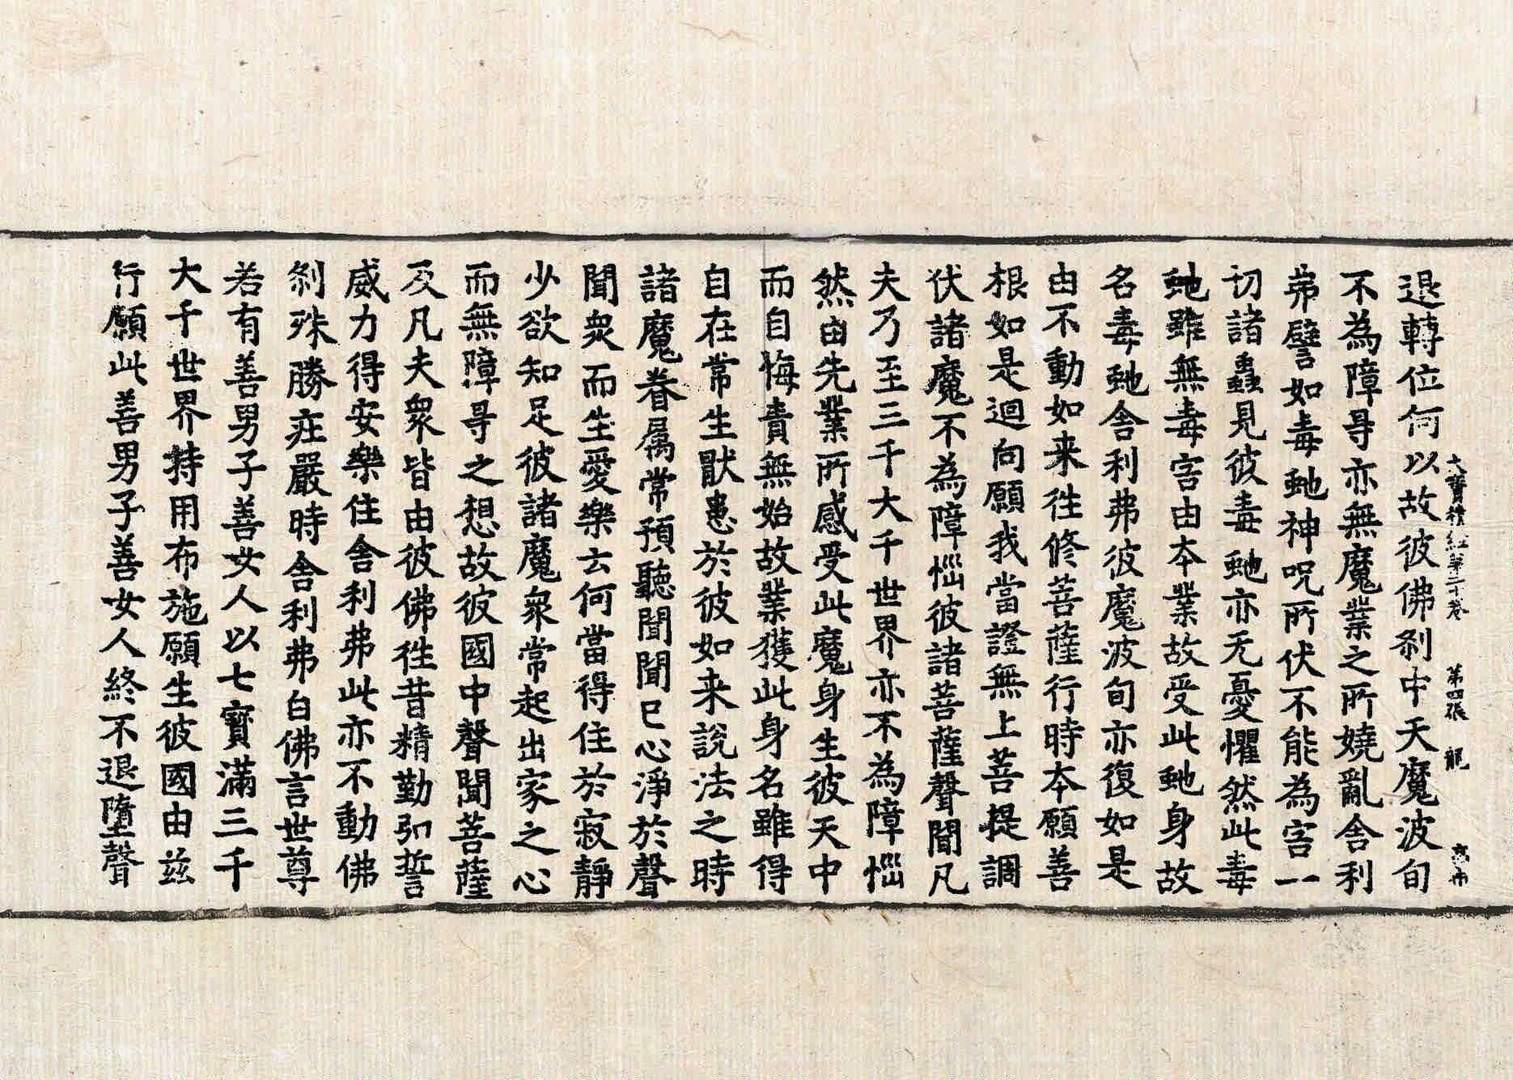 大寶積經第二十卷　第四張　龍
退轉位何以故彼佛刹中天魔波旬
不為障㝵亦無魔業之所嬈亂舍利
弗譬如毒虵神呪所伏不能為害一
切諸蟲見彼毒虵亦无憂懼然此毒
虵雖無毒害由本業故受此虵身故
名毒虵舍利弗彼魔波旬亦復如是
由不動如来徃修菩薩行時本願善
根如是迴向願我當證無上菩提調
伏諸魔不為障惱彼諸菩薩聲聞凡
夫乃至三千大千世界亦不為障惱
然由先業所感受此魔身生彼天中
而自悔責無始故業獲此身名雖得
自在常生猒患於彼如来說法之時
諸魔眷属常預聽聞聞已心淨於聲
聞衆而生愛樂云何當得住於寂靜
少欲知足彼諸魔衆常起出家之心
而無障㝵之想故彼國中聲聞菩薩
及凡夫衆皆由彼佛徃昔精勤弘誓
威力得安樂住舍利弗此亦不動佛
刹殊勝莊嚴時舍利弗白佛言世尊
若有善男子善女人以七寶滿三千
大千世界持用布施願生彼國由茲
行願此善男子善女人終不退墮聲